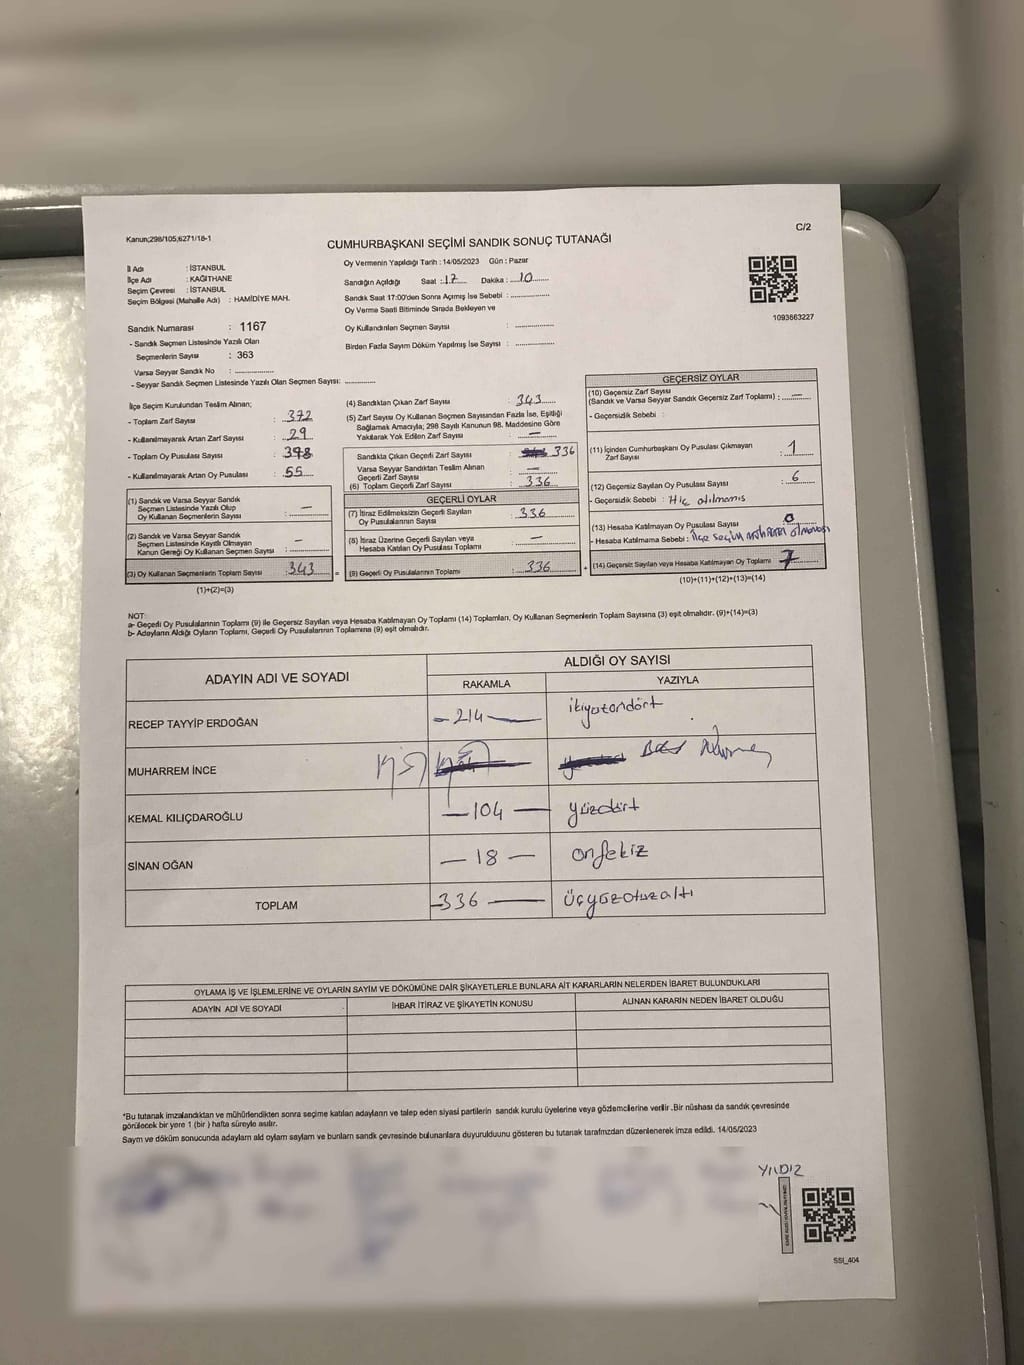 Kanun;298/105,6271/18-1
C/2
CUMHURBAŞKANI SEÇİMİ SANDIK SONUÇ TUTANAĞI
İl Adı : İSTANBUL
İlçe Adı : KAĞITHANE
Seçim Çevresi : İSTANBUL
Seçim Bölgesi (Mahalle Adı) : HAMİDİYE MAH.
Oy Vermenin Yapıldığı Tarih : 14/05/2023 Gün : Pazar
Sandığın Açıldığı Saat : 17 Dakika : 10
Sandık Saat 17:00'den Sonra Açımış İse Sebebi :
Oy Verme Saati Bitiminde Sırada Bekleyen ve
Oy Kullandırılan Seçmen Sayısı :
Birden Fazla Sayım Döküm Yapılmış İse Sayısı :
1093663227
Sandık Numarası : 1167
- Sandık Seçmen Listesinde Yazılı Olan
Seçmenlerin Sayısı : 363
Varsa Seyyar Sandık No :
- Seyyar Sandık Seçmen Listesinde Yazılı Olan Seçmen Sayısı:
İlçe Seçim Kurulundan Teslim Alınan;
- Toplam Zarf Sayısı : 372
- Kullanılmayarak Artan Zarf Sayısı : 29
- Toplam Oy Pusulası Sayısı : 398
- Kullanılmayarak Artan Oy Pusulası : 55
(1) Sandık ve Varsa Seyyar Sandık
Seçmen Listesinde Yazılı Olup
Oy Kullanan Seçmenlerin Sayısı : —
(2) Sandık ve Varsa Seyyar Sandık
Seçmen Listesinde Kayıtlı Olmayan
Kanun Gereği Oy Kullanan Seçmen Sayısı : —
(3) Oy Kullanan Seçmenlerin Toplam Sayısı : 343 =
(1)+(2)=(3)
(4) Sandıktan Çıkan Zarf Sayısı : 343
(5) Zarf Sayısı Oy Kullanan Seçmen Sayısından Fazla İse, Eşitliği
Sağlamak Amacıyla; 298 Sayılı Kanunun 98. Maddesine Göre
Yakılarak Yok Edilen Zarf Sayısı : —
Sandıkta Çıkan Geçerli Zarf Sayısı : 336
Varsa Seyyar Sandıktan Teslim Alınan
Geçerli Zarf Sayısı : —
(6) Toplam Geçerli Zarf Sayısı : 336
GEÇERLİ OYLAR
(7) İtiraz Edilmeksizin Geçerli Sayılan
Oy Pusulasının Sayısı : 336
(8) İtiraz Üzerine Geçerli Sayılan veya
Hesaba Katılan Oy Pusulası Toplamı : —
(9) Geçerli Oy Pusulalarının Toplamı : 336 +
GEÇERSİZ OYLAR
(10) Geçersiz Zarf Sayısı
(Sandık ve Varsa Seyyar Sandık Geçersiz Zarf Toplamı) : —
- Geçersidik Sebebi :
(11) İçinden Cumhurbaşkanı Oy Pusulası Çıkmayan
Zarf Sayısı : 1
(12) Geçersiz Sayılan Oy Pusulası Sayısı : 6
- Geçersidik Sebebi : Hiç atılmamış
(13) Hesaba Katılmayan Oy Pusulası Sayısı : 0
- Hesaba Katılmama Sebebi : ilçe seçim mührünün olmaması
(14) Geçersiz Sayılan veya Hesaba Katılmayan Oy Toplamı : 7
(10)+(11)+(12)+(13)=(14)
NOT:
a- Geçerli Oy Pusulalarının Toplamı (9) ile Geçersiz Sayılan veya Hesaba Katılmayan Oy Toplamı (14) Toplamları, Oy Kullanan Seçmenlerin Toplam Sayısına (3) eşit olmalıdır. (9)+(14)=(3)
b- Adayların Aldığı Oyların Toplamı, Geçerli Oy Pusulalarının Toplamına (9) eşit olmalıdır.
ADAYIN ADI VE SOYADI
ALDIĞI OY SAYISI
RAKAMLA YAZIYLA
RECEP TAYYİP ERDOĞAN -214- ikiyüzondört
MUHARREM İNCE
KEMAL KILIÇDAROĞLU -104- yüzdört
SİNAN OĞAN -18- onsekiz
TOPLAM -336- üçyüzotuzaltı
OYLAMA İŞ VE İŞLEMLERİNE VE OYLARIN SAYIM VE DÖKÜMÜNE DAİR ŞİKAYETLERLE BUNLARA AİT KARARLARIN NELERDEN İBARET BULUNDUKLARI
ADAYIN ADI VE SOYADI İHBAR İTİRAZ VE ŞİKAYETİN KONUSU ALINAN KARARIN NEDEN İBARET OLDUĞU
*Bu tutanak imzalandıktan ve mühürlendikten sonra seçime katılan adayların ve talep eden siyasi partilerin sandık kurulu üyelerine veya gözlemcilerine verilir .Bir nüshası da sandık çevresinde
görülecek bir yere 1 (bir ) hafta süreyle asılır.
Sayım ve döküm sonucunda adayların aldı oyların sayların ve bunların sandık çevresinde bulunanlara duyurulduunu gösteren bu tutanak tarafımzdan düzenlenerek imza edildi. 14/05/2023
YILDIZ
SSI_404